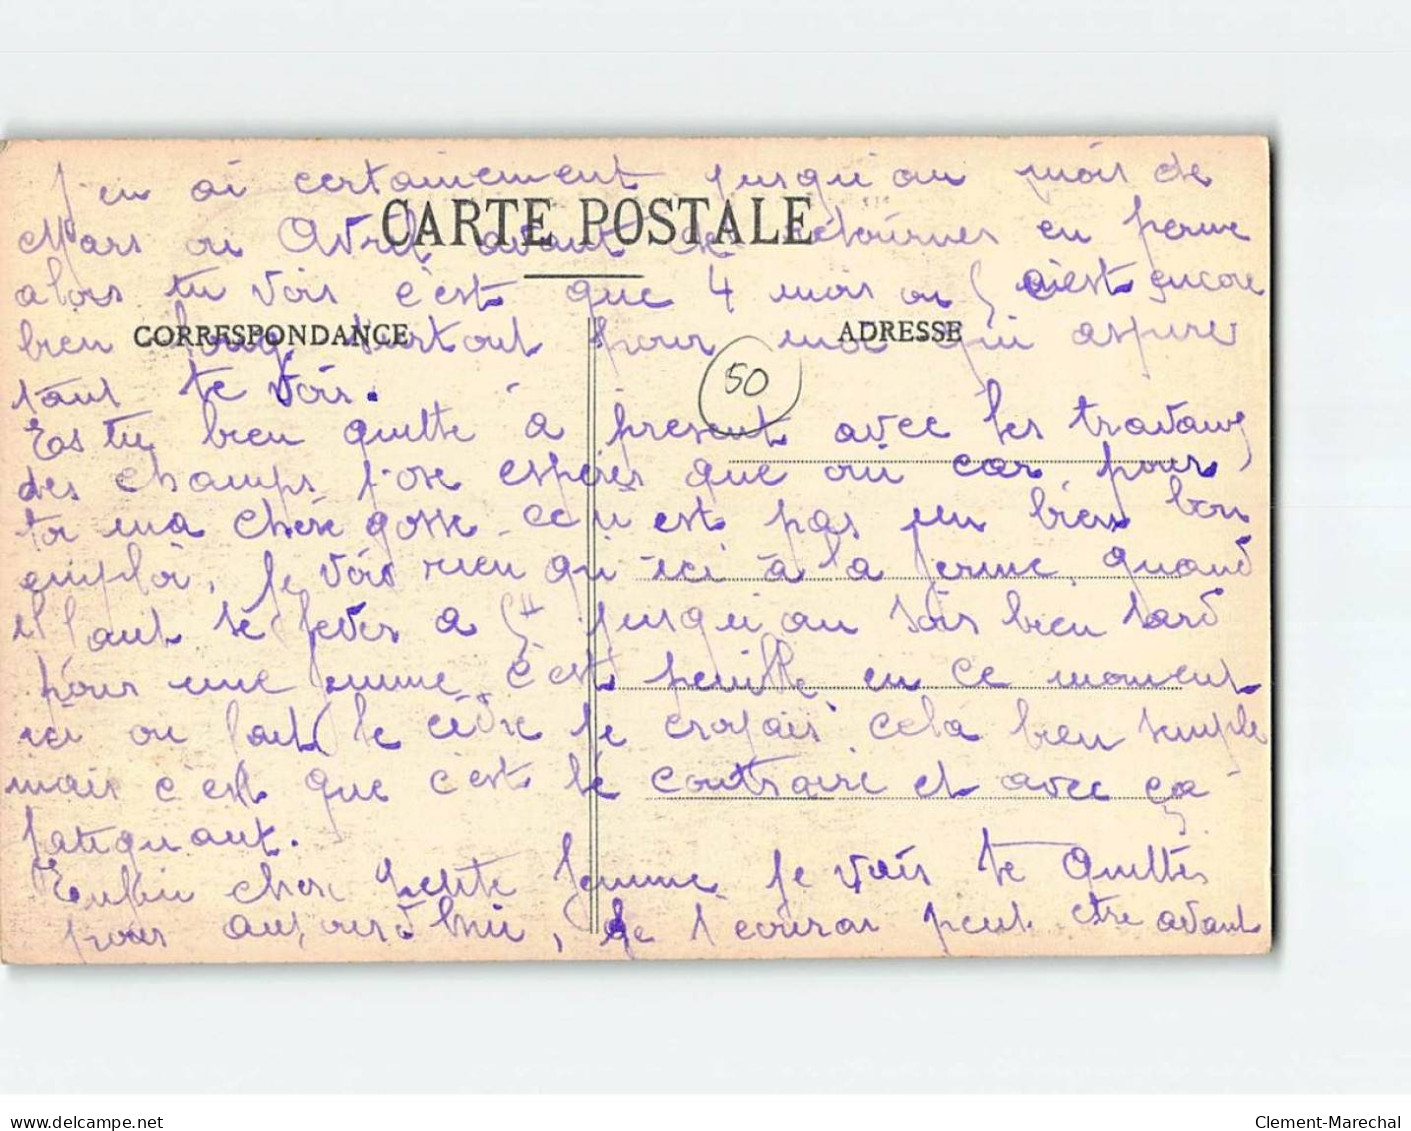 j'en ai certainement jusqu'au mois de
CARTE POSTALE
Mars ou Avril avant de retourner en perme
alors tu vois c'est que 4 mois ou 5 c'est encore
CORRESPONDANCE
ADRESSE
bien long surtout pour moi qui aspire
50
tant te voir.
Es tu bien quitte à present avec les travaux
des champs j'ose espérer que oui car pour
toi ma chère gosse ce n'est pas un bien bon
emploi, je vois rien qu'ici à la ferme, quand
il faut se lever a 5H jusqu'au soir bien tard
pour une femme c'est penible en ce moment
ici on fait le cidre je croyais cela bien simple
mais c'est que c'est le contraire et avec ça
fatiguant.
Enfin chere petite femme je vais te quitter
pour aujourd'hui, je t'ecrirai peut etre avant
delcampe.net
Clement-Marechal